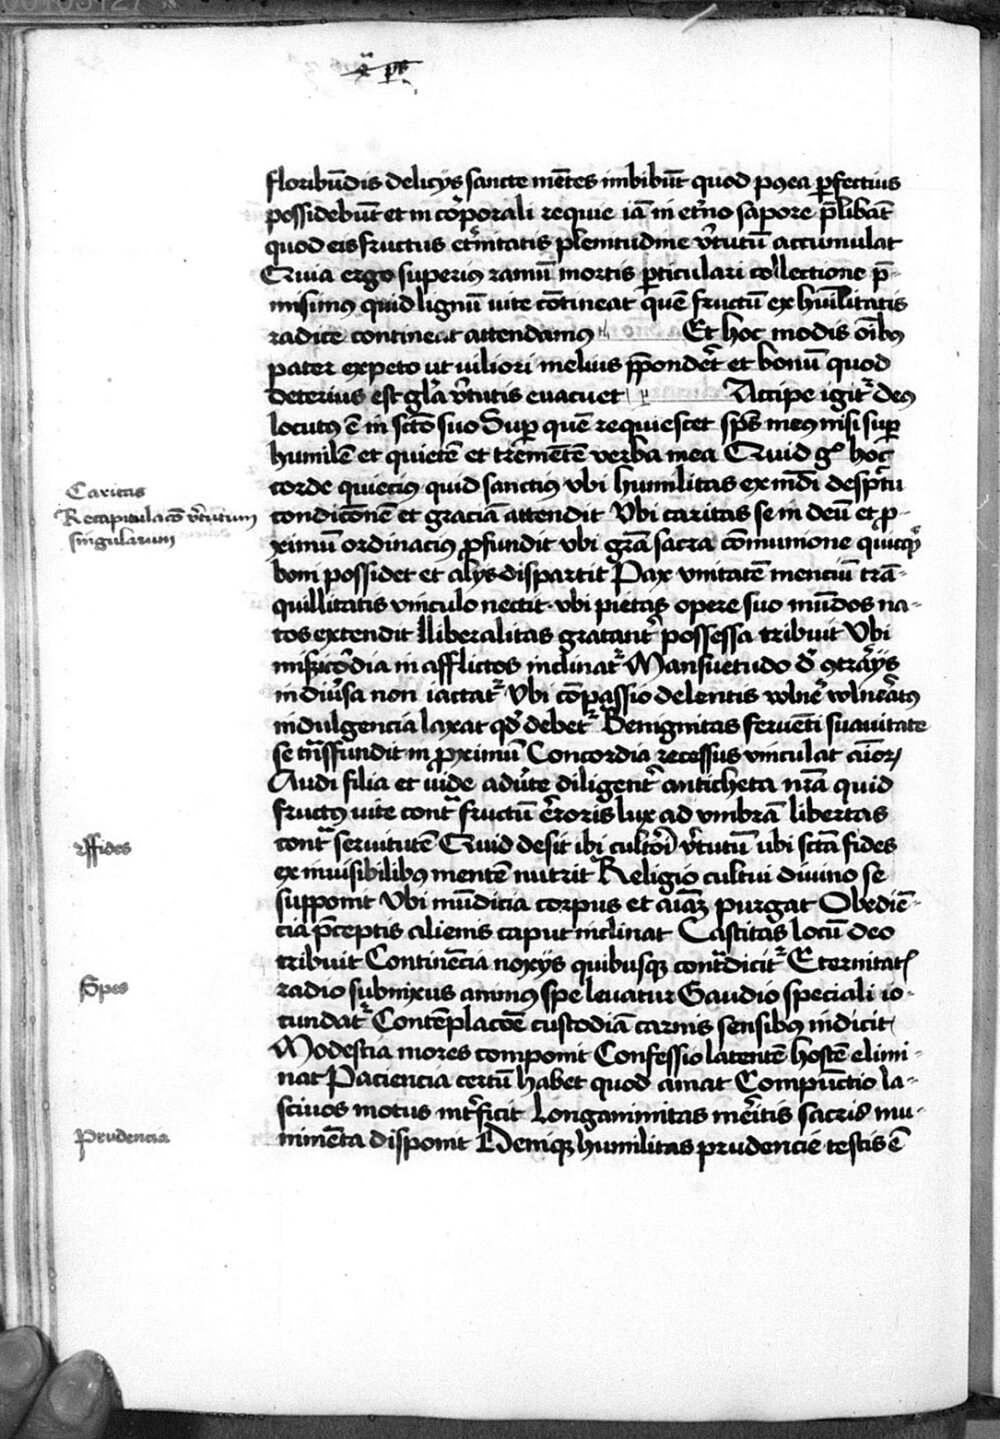 floribūdis delicijs sancte mētes imbibūt quod p9ea ꝑfectius
possidebūt et in corꝑali requie iā in et'no sapore p̄libāt
quod eis fructus et'nitatis plenitudine v'tutū accumulat
Quia ergo superi9 ramū mortis ꝑticulari collectione p̄-
misim9 quid lignū vite cōtineat quē fructū ex hūilitatis
radice contineat attendamus Et hoc modis oīb9
pater expeto ut viliori melius p̄pondet' et bonū quod
deterius est gl'a v'tutis evacuet Accipe igit' de9
locut9 ē in scto suo Sup quē requiescet sp̄s me9 nisi sup
humilē et quietē et tremētē verba mea Quid gͦ hoc
corde quieci9 quid sancti9 vbi humilitas ex mūdi desp̄tu
condicōnē et graciā attendit Vbi caritas se in deū et ꝓ-
ximū ordinaci9 ꝓfundit vbi gr̄a sacra cōmunione quicq̄
boni possidet et alijs dispartit Pax vnitatē menciū trā-
quillitatis vinculo nectit vbi pietas opere suo mūdos na-
tos extendit Liberalitas gratant' possessa tribuit Vbi
mis'icordia in afflictos inclinat' Mansuetudo d' 9trarijs
in diu'sa non iactat' Vbi cōpassio delentis vuln' vulnerat9
indulgencia laxat qd' debet' Benignitas feruēti suauitate
se trāsfundit in ꝓximū Concordia recessus vinculat aīoꝝ
Audi filia et vide adu'te diligent' anticheta nr̄a quid
fruct9 vite contra fructū erroris lux ad vmbrā libertas
contra seruitutē Quid desit ibi cultori v'tutū ubi sctā fides
ex invisibilib9 mentē nutrit Religio cultui diuino se
supponit Vbi mūdicia corpus et aīaꝫ purgat Obediē-
cia p̄ceptis alienis caput inclinat Castitas locū deo
tribuit Continēcia noxijs quibusqꝫ contradicit' Eternitatꝭ
radio submixus animus spe levatur Gaudio speciali io-
cundat' Contēplacōe custodiā carnis sensib9 indicit
Modestia mores componit Confessio latentē hostē elimi-
nat Paciencia certū habet quod amat Compūctio la-
sciuos motus int'ficit Longanimitas meritis sacris mu-
nimēta disponit Deniqꝫ humilitas prudencie testis ē
Caritas
Recapitulacō v'tutum
singularum
ffides
Spes
Prudencia